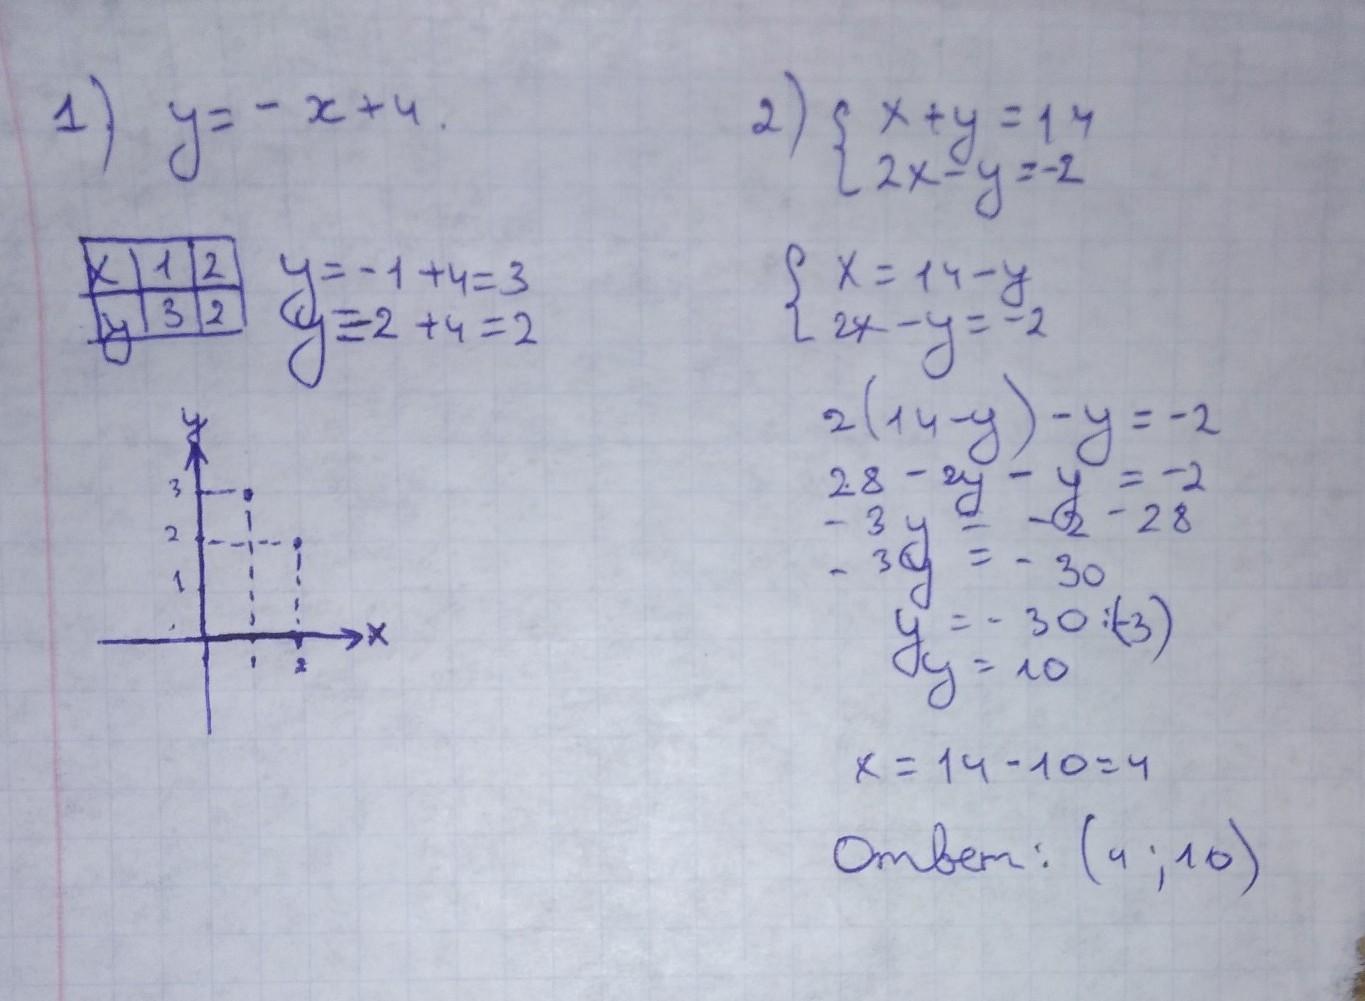 1) y = - x + 4.
x | 1 | 2
y | 3 | 2
y = -1 + 4 = 3
y = -2 + 4 = 2
y
3
2
1
x
1 2
2) { x + y = 14
2x - y = -2
{ x = 14 - y
2x - y = -2
2(14 - y) - y = -2
28 - 2y - y = -2
- 3y = -2 - 28
- 3y = - 30
y = - 30 : (-3)
y = 10
x = 14 - 10 = 4
Ответ: (4 ; 10)